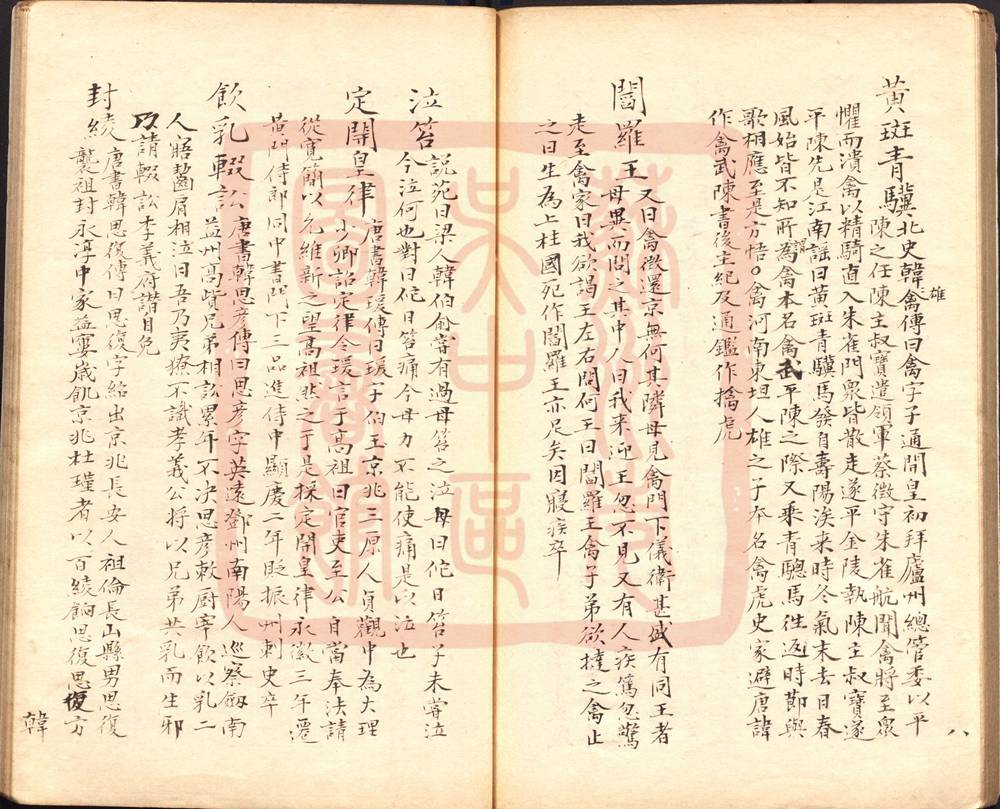 黃斑青驥北史韓禽傳曰禽字子通開皇初拜廬州總管委以平
雄
陳之任陳主叔寶遣領軍蔡徵守朱雀航聞禽將至眾
懼而潰禽以精騎直入朱雀門眾皆散走遂平金陵執陳主叔寶遂
平陳先是江南謡曰黃斑青驥馬發自壽陽涘来時冬氣末去日春
風始皆不知所謂為禽本名禽武平陳之際又乘青驄馬徃返時節與
歌相應至是方悟○禽河南東垣人雄之子本名禽虎史家避唐諱
作禽武陳書後主紀及通鑑作擒虎
閻羅王又曰禽徵還京無何其隣母見禽門下儀衛甚盛有同王者
母異而問之其中人曰我来迎王忽不見又有人疾篤忽驚
走至禽家曰我欲謁王左右問何王曰閻羅王禽子弟欲撻之禽止
之曰生為上柱國死作閻羅王亦足矣因寢疾卒
八
泣笞說苑曰梁人韓伯俞甞有過母笞之泣母曰佗日笞子未甞泣
今泣何也對曰佗日笞痛今母力不能使痛是以泣也
定開皇律唐書韓瑗傳曰瑗字伯玉京兆三原人貞觀中為大理
少卿詔定律令瑗言于高祖曰官吏至公自當奉法請
從寬簡以允維新之望高祖然之于是採定開皇律永徽三年遷
黃門侍郎同中書門下三品進侍中顯慶二年貶振州刺史卒
飲乳輟訟唐書韓思彦傳曰思彦字英遠鄧州南陽人巡察劔南
益州高貲兄弟相訟累年不決思彦敕廚宰飲以乳二
人寤齧肩相泣曰吾乃夷獠不識孝義公將以兄弟共乳而生邪
乃請輟訟李義府譛自免
封綾唐書韓思復傳曰思復字紹出京兆長安人祖倫長山縣男思復
襲祖封永淳中家益窶歲飢京兆杜瑾者以百綾餉思復思復方
韓